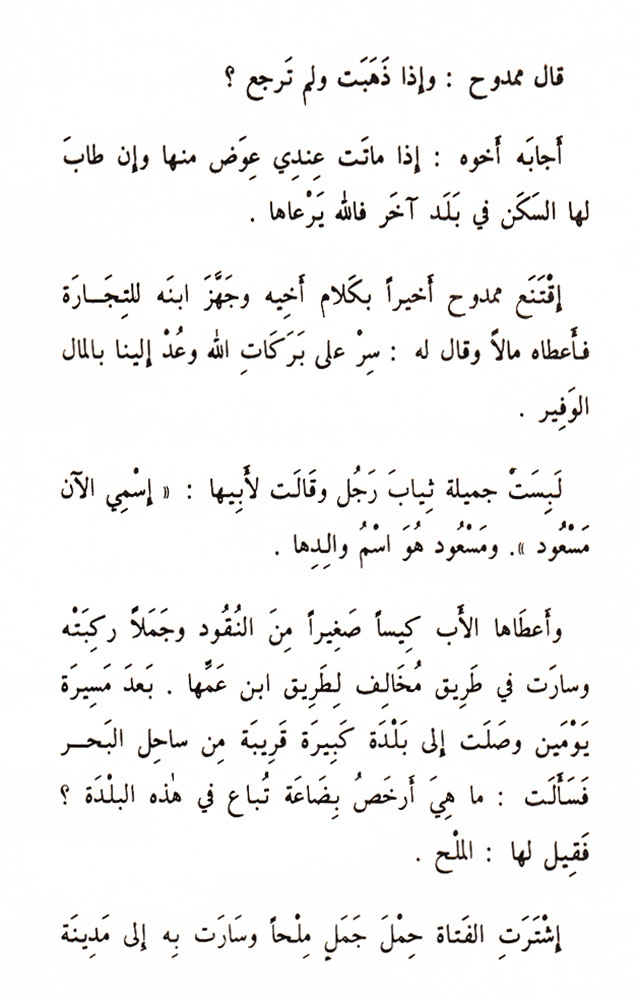 قال ممدوح : وإذا ذَهَبَت ولم تَرجع ؟
أَجابَه أَخوه : إذا ماتَت عِندِي عِوَض منها وإن طابَ
لها السَكَن في بَلَد آخَر فالله يَرْعاها .
إقْتَنَع ممدوح أَخيراً بكَلام أَخِيه وجَهَّزَ ابنَه للتِجَارَة
فأَعطاه مالاً وقال له : سِرْ على بَرَكَاتِ الله وعُدْ إلينا بالمال
الوَفِير .
لَبِسَتْ جميلة ثِيابَ رَجُل وقَالَت لأَبِيها : « إسْمِي الآن
مَسْعُود ». ومَسْعُود هُوَ اسْمُ والِدِها .
وأَعطَاها الأَب كِيساً صَغِيراً مِنَ النُقُود وجَمَلاً ركِبَتْه
وسارَت في طَرِيق مُخَالِف لِطَرِيق ابن عَمِّها . بَعدَ مَسِيرَة
يَوْمَين وصَلَت إلى بَلْدَة كَبِيرَة قَرِيبَة مِن ساحِل البَحـر
فَسَأَلَت : ما هِيَ أَرخَصُ بِضَاعَة تُباع في هٰذه البلْدَة ؟
فَقِيل لها : الملْح .
إشْتَرَتِ الفَتاة حِمْلَ جَمَلٍ مِلْحاً وسَارَت بِه إلى مَدِينَة